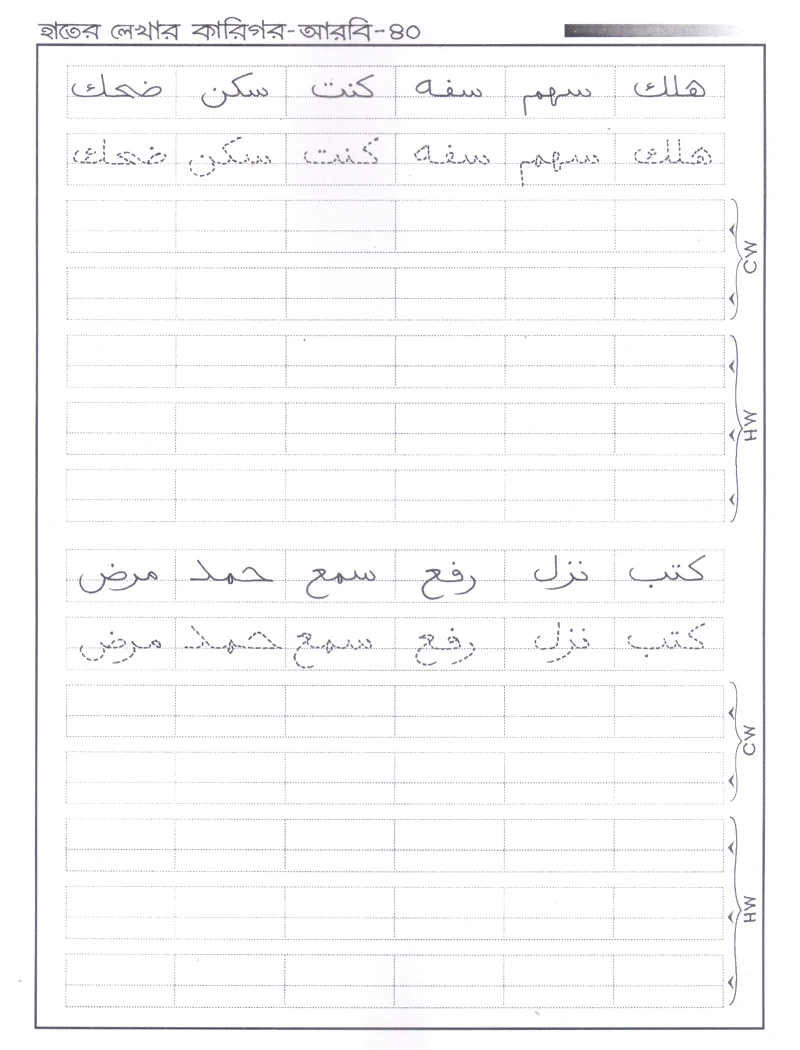 হাতের লেখার কারিগর-আরবি-৪০
هلك سهم سفه كنت سكن ضحك
هلك سهم سفه كنت سكن ضحك
CW
HW
كتب نزل رفع سمع حمد مرض
كتب نزل رفع سمع حمد مرض
CW
HW